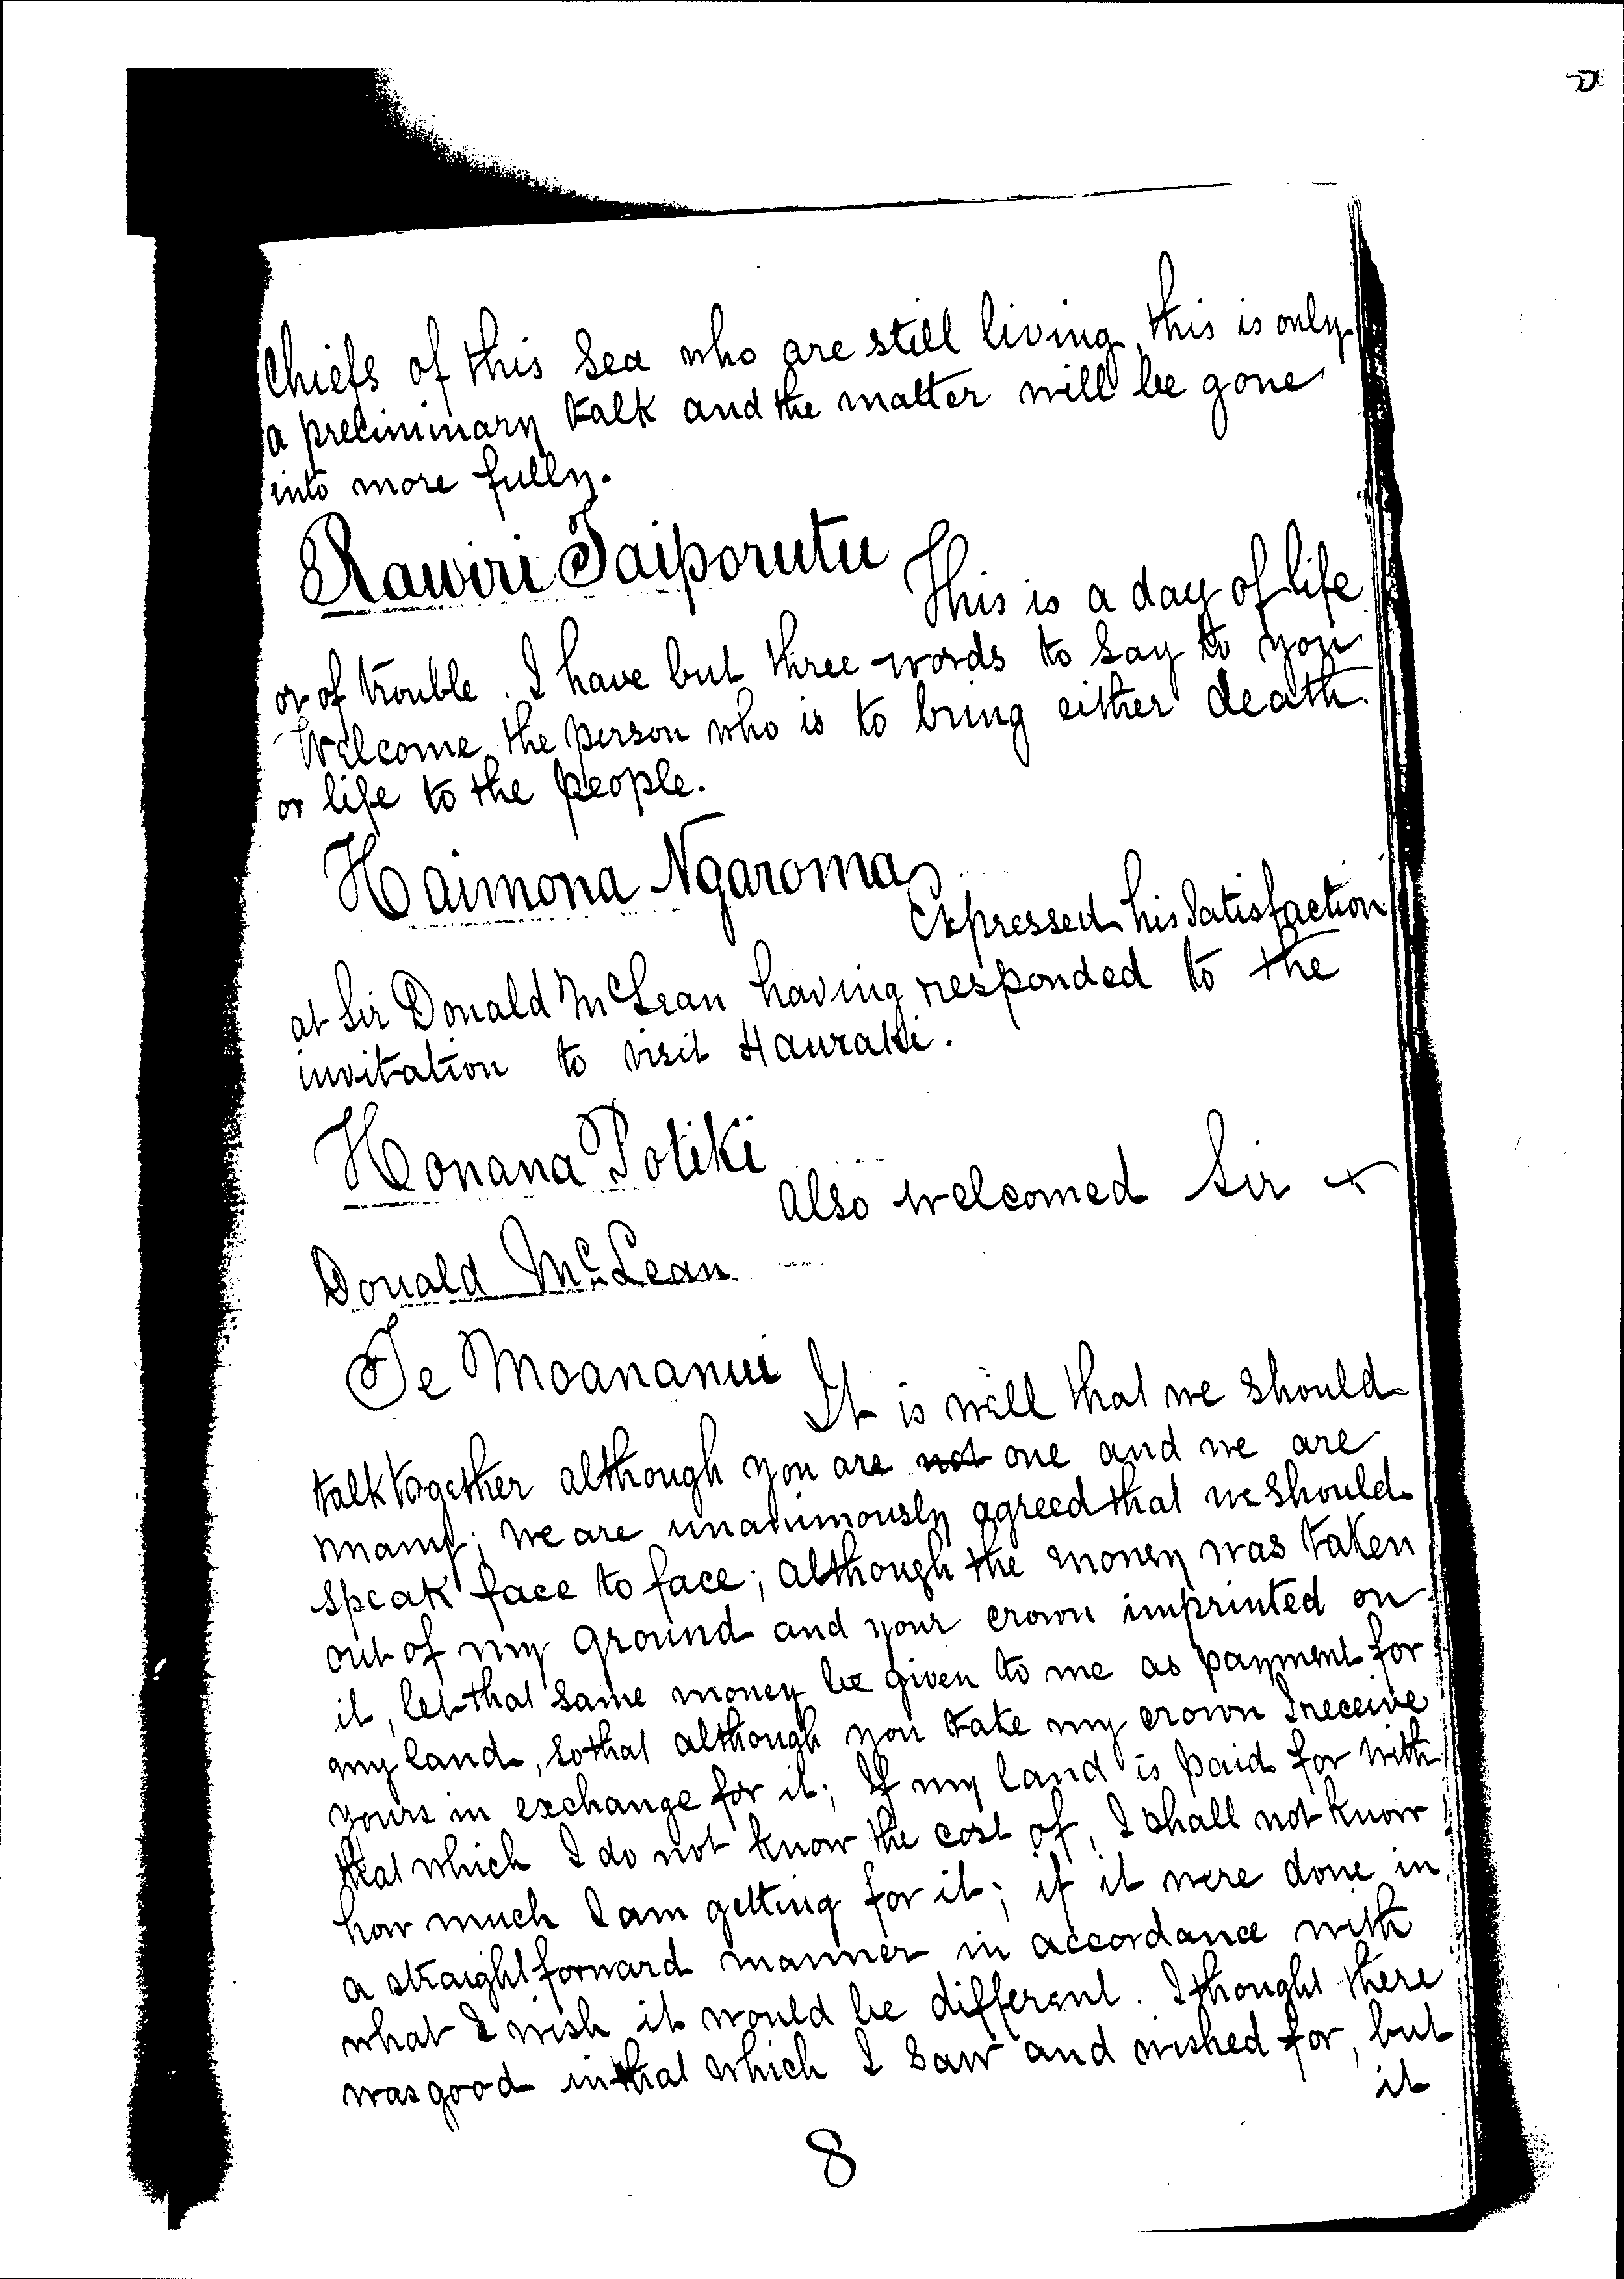 Chiefs of this Sea who are still living, this is only
a preliminary talk and the matter will be gone
into more fully.
Rawiri Taiporutu This is a day of life
or of trouble. I have but three words to say to you
Welcome, the person who is to bring either death
or life to the people.
Haimona Ngaroma Expressed his Satisfaction
at Sir Donald McLean having responded to the
invitation to visit Hauraki.
Honana Potiki also welcomed Sir
Donald McLean
Te Moananui It is well that we should
talk together although you are not one and we are
many; we are unanimously agreed that we should
speak face to face; although the money was taken
out of my ground and your crown imprinted on
it, let that same money be given to me as payment for
my land, so that although you take my crown I receive
yours in exchange for it; If my land is paid for with
that which I do not know the cost of, I shall not know
how much I am getting for it; if it were done in
a straightforward manner in accordance with
what I wish it would be different. I thought there
was good in that which I saw and wished for, but
it
8